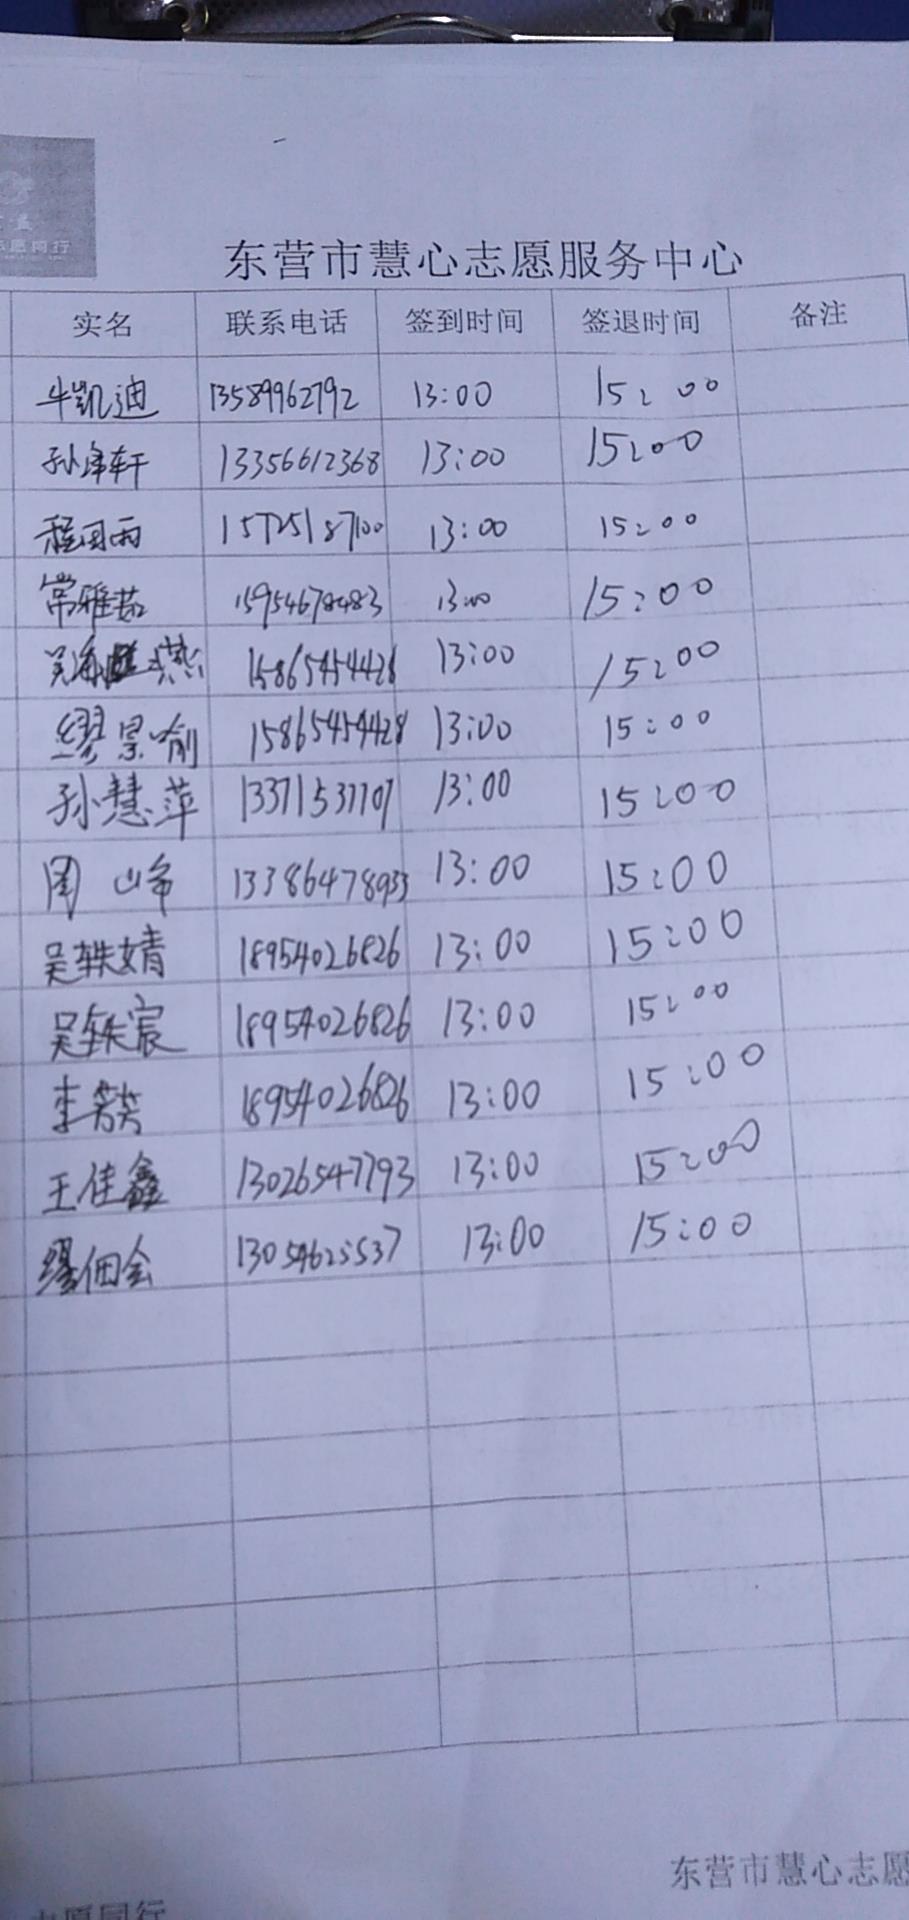 志愿同行
东营市慧心志愿服务中心
实名 联系电话 签到时间 签退时间 备注
牛凯迪 13589962792 13:00 15:00
孙泽轩 13356612368 13:00 15:00
程同雨 15725187100 13:00 15:00
常雅茹 15954678483 13:00 15:00
吴海燕 15865454428 13:00 15:00
缪景喻 15865454428 13:00 15:00
孙慧萍 13371537707 13:00 15:00
周峰 13386478933 13:00 15:00
吴轶婧 18954026826 13:00 15:00
吴轶宸 18954026826 13:00 15:00
李芳芳 18954026826 13:00 15:00
王佳鑫 13026547793 13:00 15:00
缪佃会 13054625537 13:00 15:00
东营市慧心志愿
志愿同行